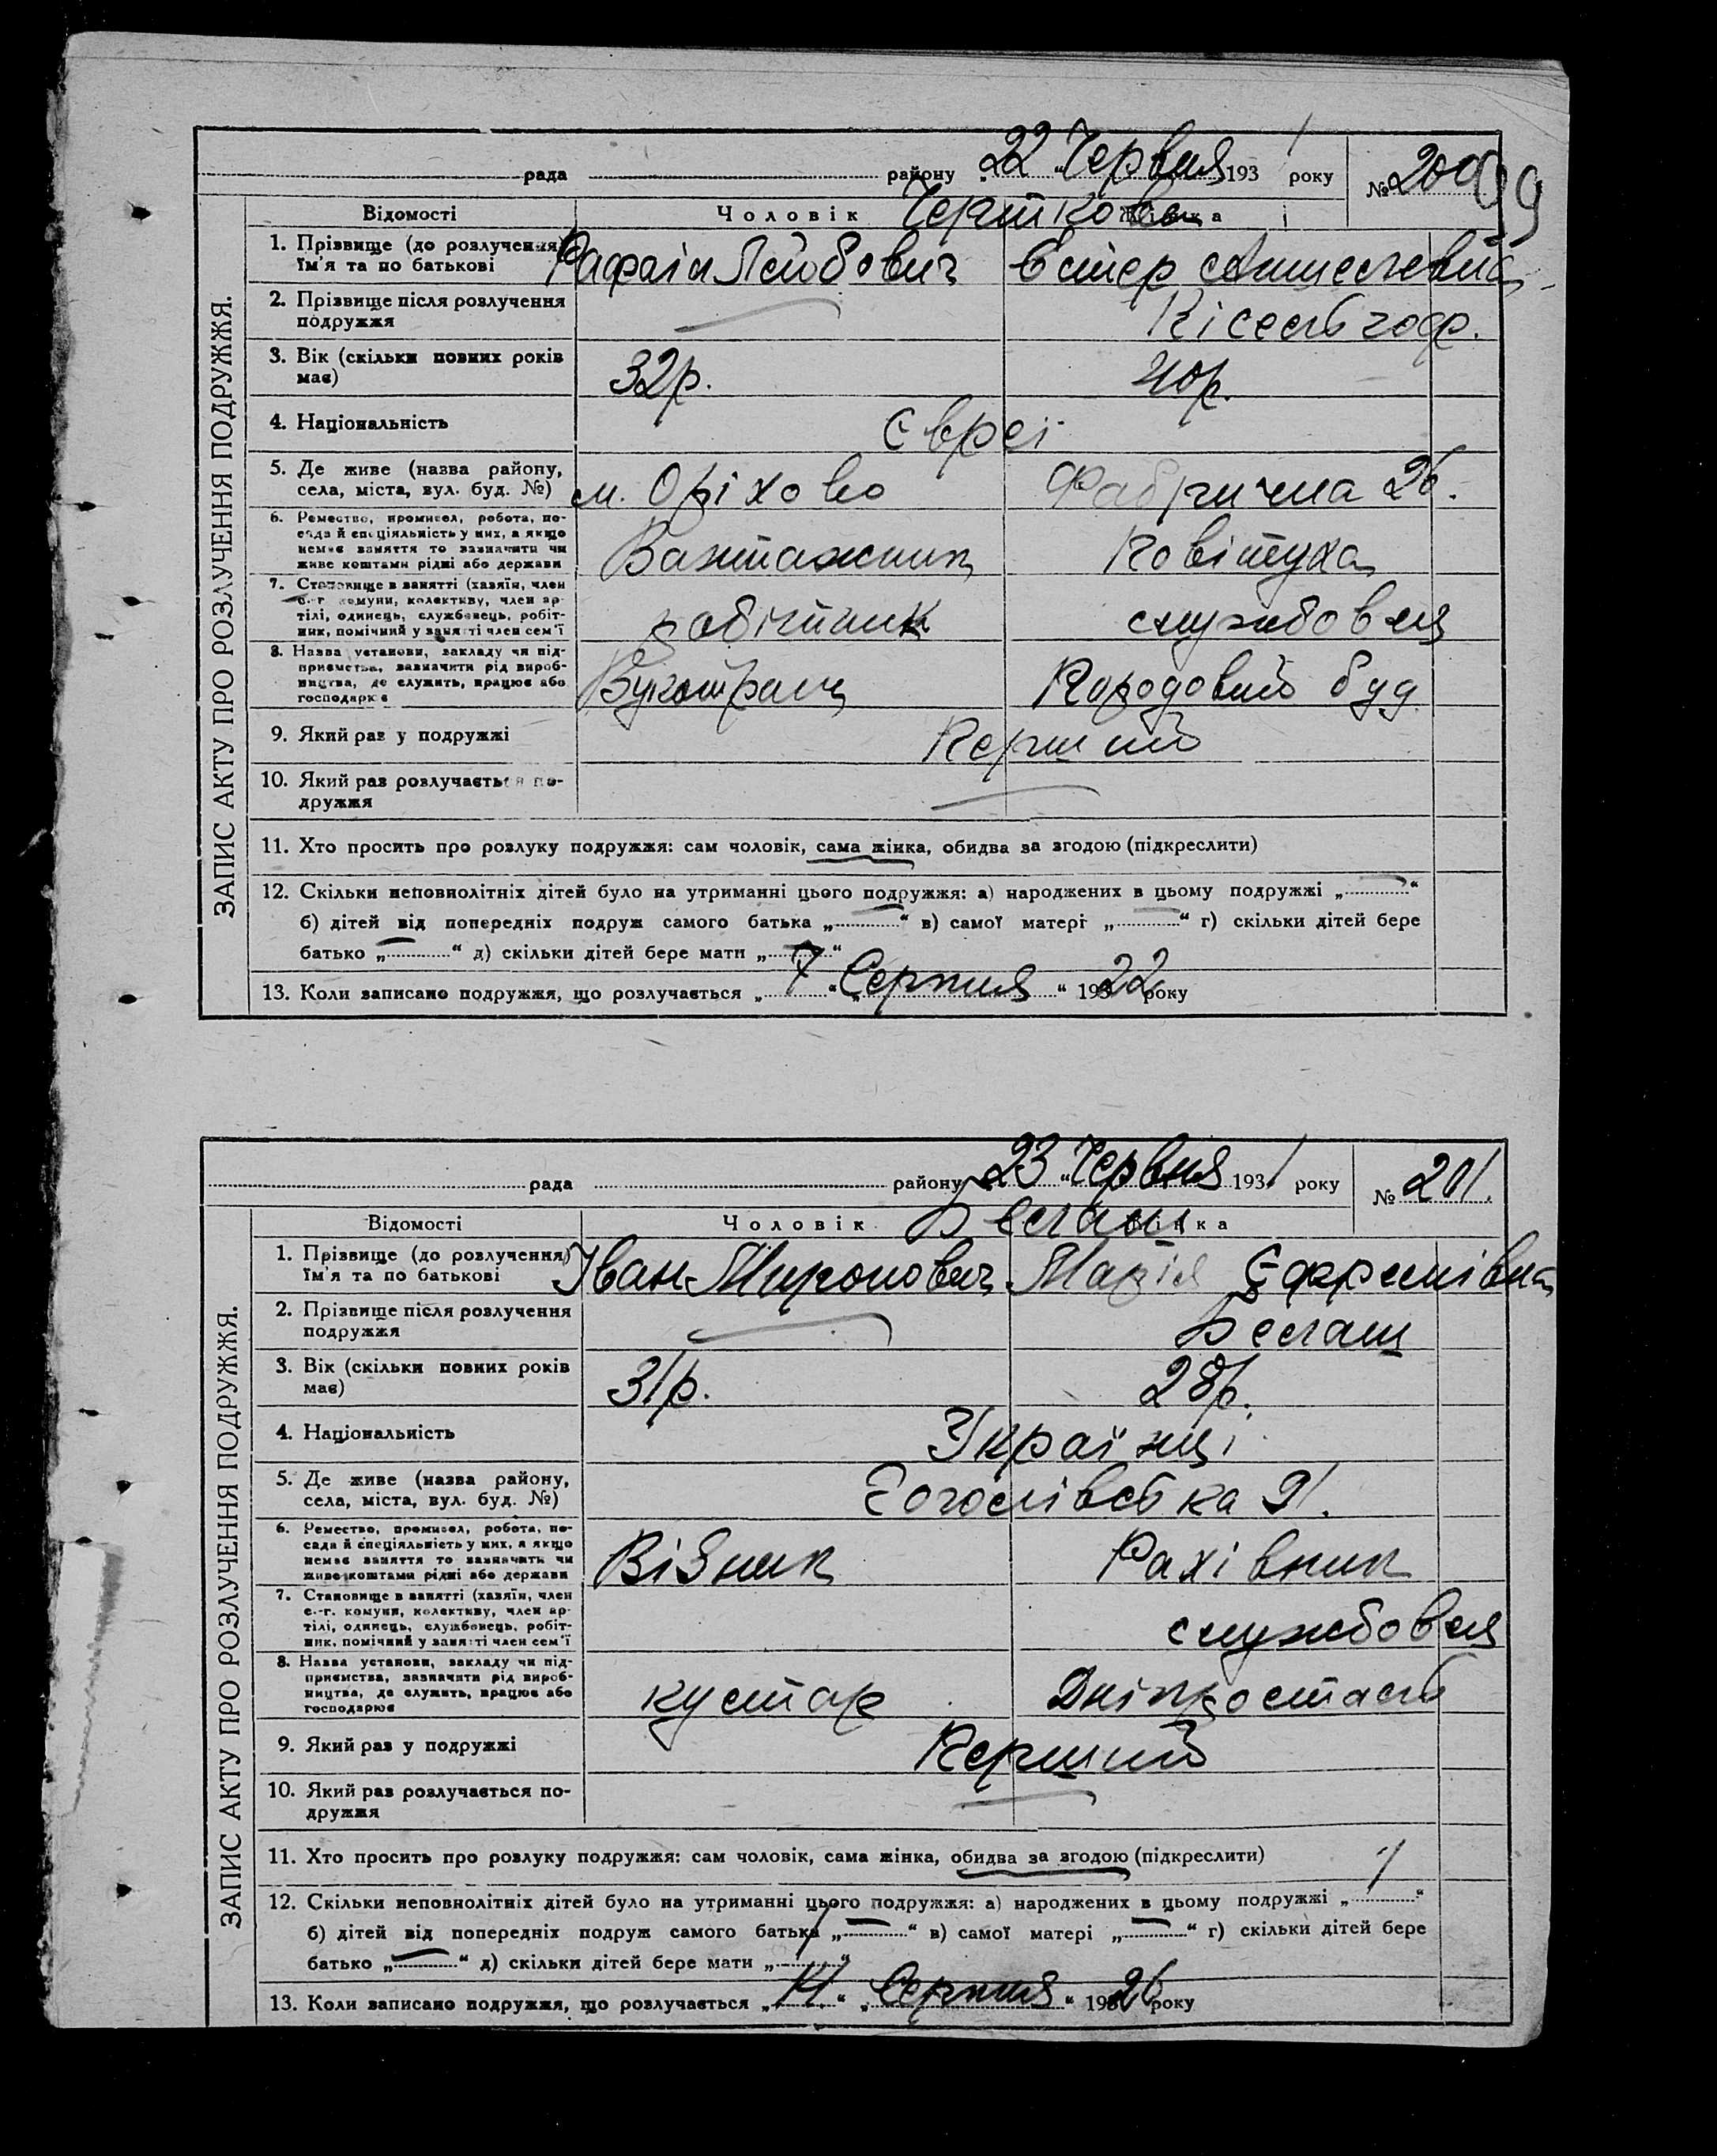 рада району „22 „Червня 1931 року № 200 99
Відомості Чоловік Жінка
1. Прізвище (до розлучення) Ім'я та по батькові Рафаіл Лейбович Естер
2. Прізвище після розлучення подружжя
3. Вік (скільки повних років має) 32р. 40р.
4. Національність Євреї
5. Де живе (назва району, села, міста, вул. буд. №) м. Оріхово Фабрична 26.
6. Ремество, промисел, робота, посада й спеціяльність у них, а якщо немає заняття то зазначити чи живе коштами рідні або держави Вантажник
7. Становище в занятті (хазяїн, член с.-г. комуни, колективу, член артілі, одинець, службовець, робітник, помічний у занятті член сем'ї робітник службовця
8. Назва установи, закладу чи підприємства, зазначити рід виробництва, де служить, працює або господарює
9. Який раз у подружжі Перший
10. Який раз розлучається подружжя
11. Хто просить про розлуку подружжя: сам чоловік, сама жінка, обидва за згодою (підкреслити)
12. Скільки неповнолітніх дітей було на утриманні цього подружжя: а) народжених в цьому подружжі „ “
б) дітей від попередніх подруж самого батька „ “ в) самої матері „ “ г) скільки дітей бере
батько „ “ д) скільки дітей бере мати „ “
13. Коли записано подружжя, що розлучається „ 7 “ „ Серпня “ 1922 року
ЗАПИС АКТУ ПРО РОЗЛУЧЕННЯ ПОДРУЖЖЯ.
рада району „23 „Червня 1931 року № 201.
Відомості Чоловік Жінка
1. Прізвище (до розлучення) Ім'я та по батькові Іван Миронович Марія
2. Прізвище після розлучення подружжя
3. Вік (скільки повних років має) 31р. 28р.
4. Національність Українці
5. Де живе (назва району, села, міста, вул. буд. №) Гоголівська 91.
6. Ремество, промисел, робота, посада й спеціяльність у них, а якщо немає заняття то зазначить чи живе коштами рідні або держави Візник Рахівник
7. Становище в занятті (хазяїн, член с.-г. комуни, колективу, член артілі, одинець, службовець, робітник, помічний у занятті член сем'ї службовця
8. Назва установи, закладу чи підприємства, зазначити рід виробництва, де служить, працює або господарює кустар Дніпросталь
9. Який раз у подружжі Перший
10. Який раз розлучається подружжя
11. Хто просить про розлуку подружжя: сам чоловік, сама жінка, обидва за згодою (підкреслити)
12. Скільки неповнолітніх дітей було на утриманні цього подружжя: а) народжених в цьому подружжі „ 1 “
б) дітей від попередніх подруж самого батька „ “ в) самої матері „ “ г) скільки дітей бере
батько „ “ д) скільки дітей бере мати „ 1 “
13. Коли записано подружжя, що розлучається „ “ „ Серпня “ 1926 року
ЗАПИС АКТУ ПРО РОЗЛУЧЕННЯ ПОДРУЖЖЯ.